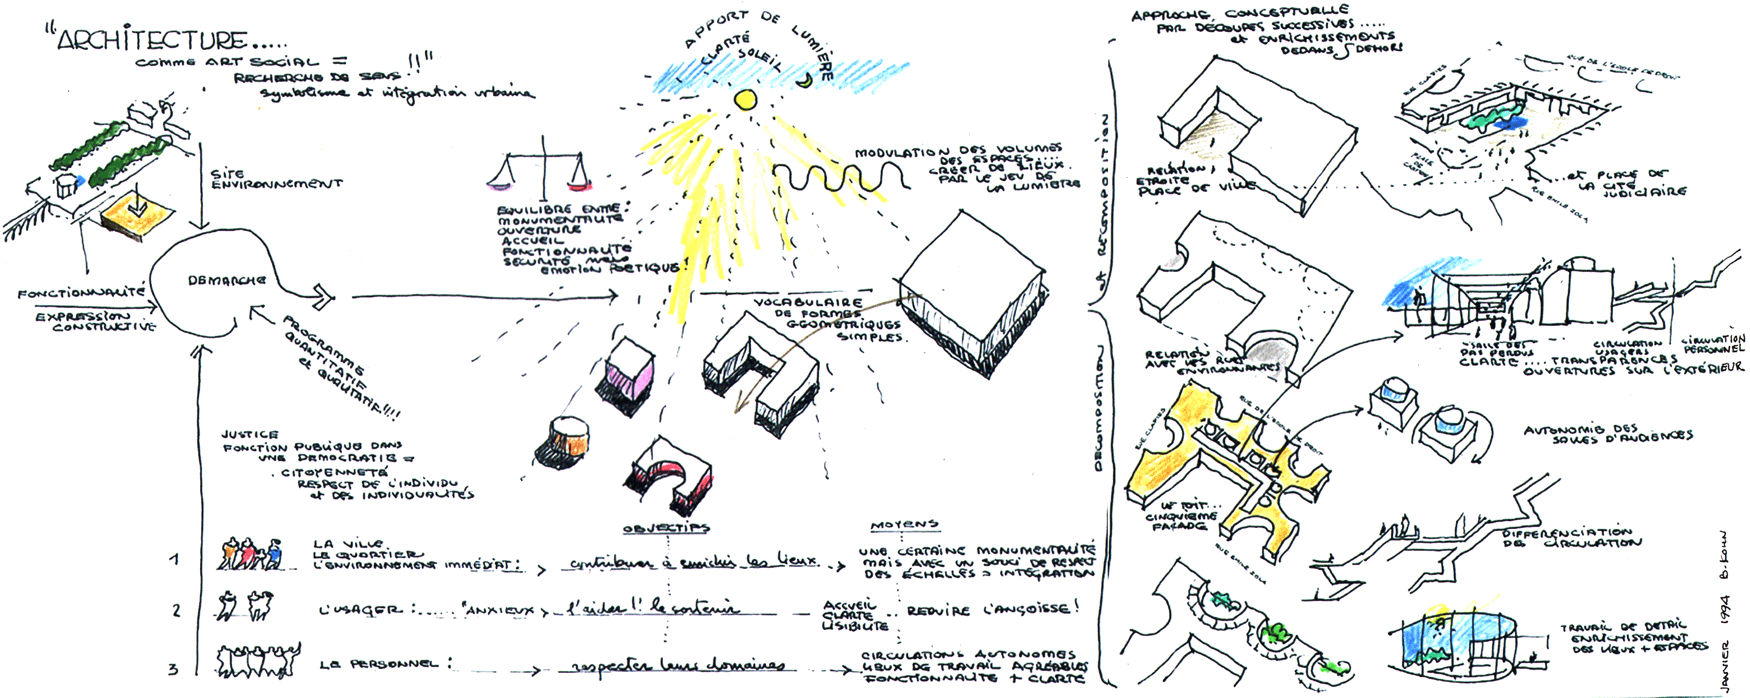 "ARCHITECTURE.....
COMME ART SOCIAL =
RECHERCHE DE SENS !!"
symbolisme et intégration urbaine
SITE
ENVIRONNEMENT
DEMARCHE
FONCTIONNALITÉ
EXPRESSION
CONSTRUCTIVE
PROGRAMME
QUANTITATIF
et QUALITATIF!!!!
JUSTICE
FONCTION PUBLIQUE DANS
UNE DEMOCRATIE =
CITOYENNETÉ
RESPECT DE L'INDIVIDU
et DES INDIVIDUALITÉS
APPORT DE LUMIÈRE
CLARTÉ
SOLEIL
EQUILIBRE ENTRE:
MONUMENTALITÉ
OUVERTURE
ACCUEIL
FONCTIONNALITÉ
SECURITÉ MAIS
EMOTION POETIQUE!
MODULATION DES VOLUMES
DES ESPACES...
CRÉER DE LIEUX.
PAR LE JEU DE
LA LUMIÈRE
VOCABULAIRE
DE FORMES
GEOMETRIQUES
SIMPLES.
OBJECTIFS
MOYENS
1
LA VILLE
LE QUARTIER
L'ENVIRONNEMENT IMMÉDIAT:
contribuer à enrichir les lieux
UNE CERTAINE MONUMENTALITÉ
MAIS AVEC UN SOUCI DE RESPECT
DES ÉCHELLES = INTÉGRATION
2
L'USAGER: ...... "ANXIEUX
l'aider!! le soutenir
ACCUEIL
CLARTE
LISIBILITE
REDUIRE L'ANGOISSE!
3
LE PERSONNEL:
respecter leurs domaines
CIRCULATIONS AUTONOMES
LIEUX DE TRAVAIL AGRÉABLES
FONCTIONNALITE + CLARTÉ
DECOMPOSITION
et RECOMPOSITION
APPROCHE CONCEPTUELLE
PAR DÉCOUPES SUCCESSIVES.....
et ENRICHISSEMENTS
DEDANS / DEHORS
RELATION
ETROITE
PLACE DE VILLE
RUE DE L'ECOLE DE DROIT
RUE CLAPIES
PLACE
DE
RUE EMILE ZOLA
...et PLACE DE
LA CITÉ
JUDICIAIRE
RELATION
AVEC LES RUES
ENVIRONNANTES
SALLE DES
PAS PERDUS
CLARTE .... TRANSPARENCES
OUVERTURES SUR L'EXTÉRIEUR
CIRCULATION
USAGERS
CIRCULATION
PERSONNEL
RUE CLAPIES
RUE DE L'ECOLE DE DROIT
LE TOIT...
CINQUIEME
FAÇADE
RUE EMILE ZOLA
AUTONOMIE DES
SALLES D'AUDIENCES
DIFFERENCIATION
DES CIRCULATION
TRAVAIL DE DETAIL
ENRICHISSEMENT
DES LIEUX + ESPACES
JANVIER 1994 B. KOHN